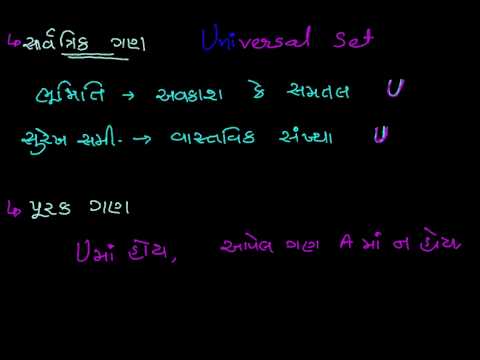 સાર્વત્રિક ગણ Universal Set
ભૂમિતિ → અવકાશ કે સમતલ U
સુરેખ સમી. → વાસ્તવિક સંખ્યા U
પૂરક ગણ
Uમાં હોય, આપેલ ગણ A માં ન હોય